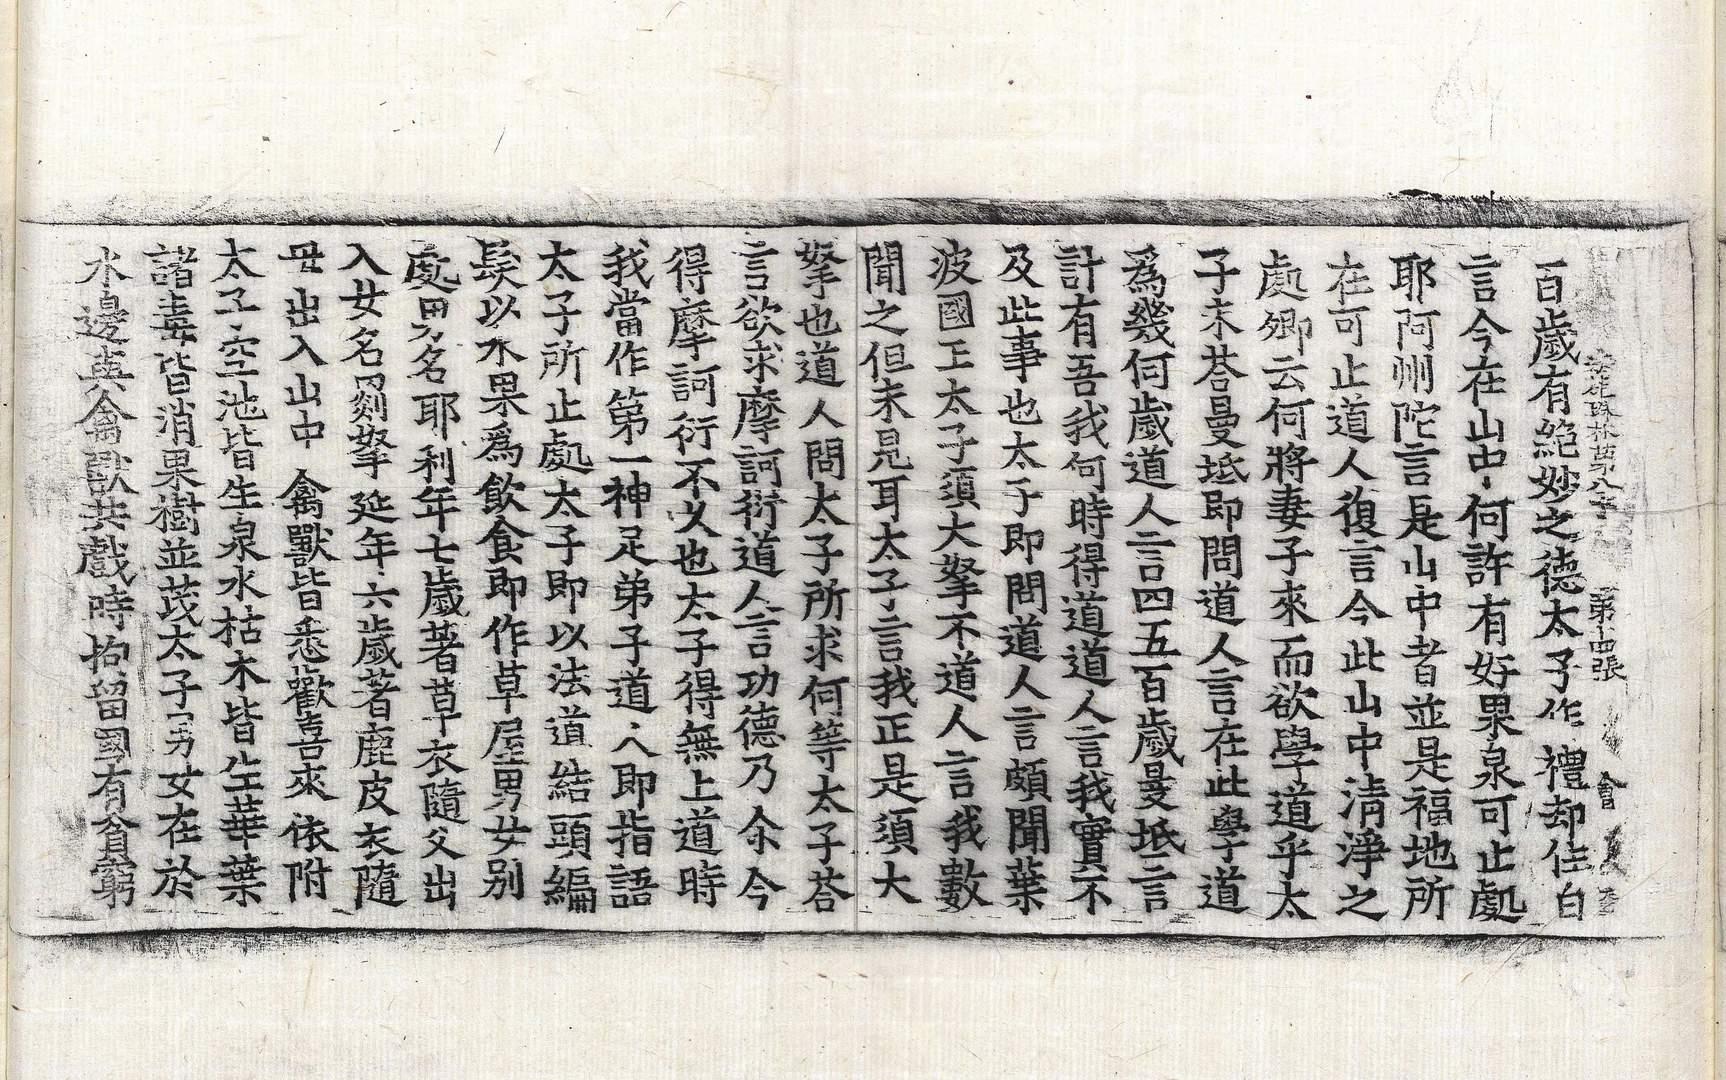 法苑珠林第八十 第十四張 會
百歲有絶妙之德太子作禮却住白
言今在山中何許有好果泉可止處
耶阿州陀言是山中者並是福地所
在可止道人復言今此山中淸淨之
處卿云何將妻子來而欲學道乎太
子未荅曼坻即問道人言在此學道
爲幾何歲道人言四五百歲曼坻言
計有吾我何時得道道人言我實不
及此事也太子即問道人言頗聞葉
波國王太子須大拏不道人言我數
聞之但未見耳太子言我正是須大
拏也道人問太子所求何等太子荅
言欲求摩訶衍道人言功德乃尒今
得摩訶衍不乆也太子得無上道時
我當作第一神足弟子道人即指語
太子所止處太子即以法道結頭編
髮以水果爲飮食即作草屋男女别
處男名耶利年七歲著草衣隨父出
入女名罽拏延年六歲著鹿皮衣隨
母出入山中禽獸皆悉歡喜來依附
太子空池皆生泉水枯木皆生華葉
諸毒皆消果樹並茂太子男女在於
水邊與禽獸共戲時拘留國有貧窮